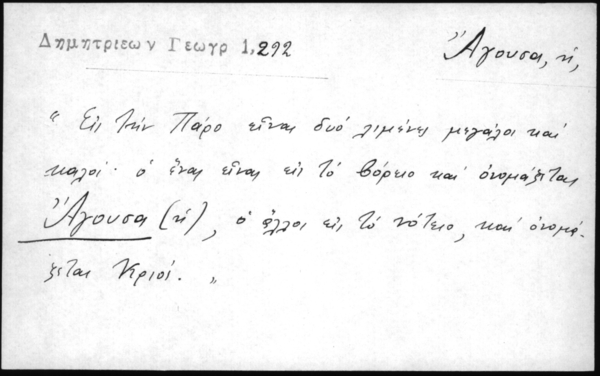 Δημητριεων Γεωγρ 1,292
Ἄγουσα, ἡ,
„ Εἰς τὴν Πάρο εἶναι δυό λιμένες μεγάλοι καὶ
καλοί· ὁ ἕνας εἶναι εἰς τὸ βόρειο καὶ ὀνομάζεται
Ἄγουσα (ἡ), ὁ ἄλλος εἰς τὸ νότειο, καὶ ὀνομά-
ζεται Κριός. „